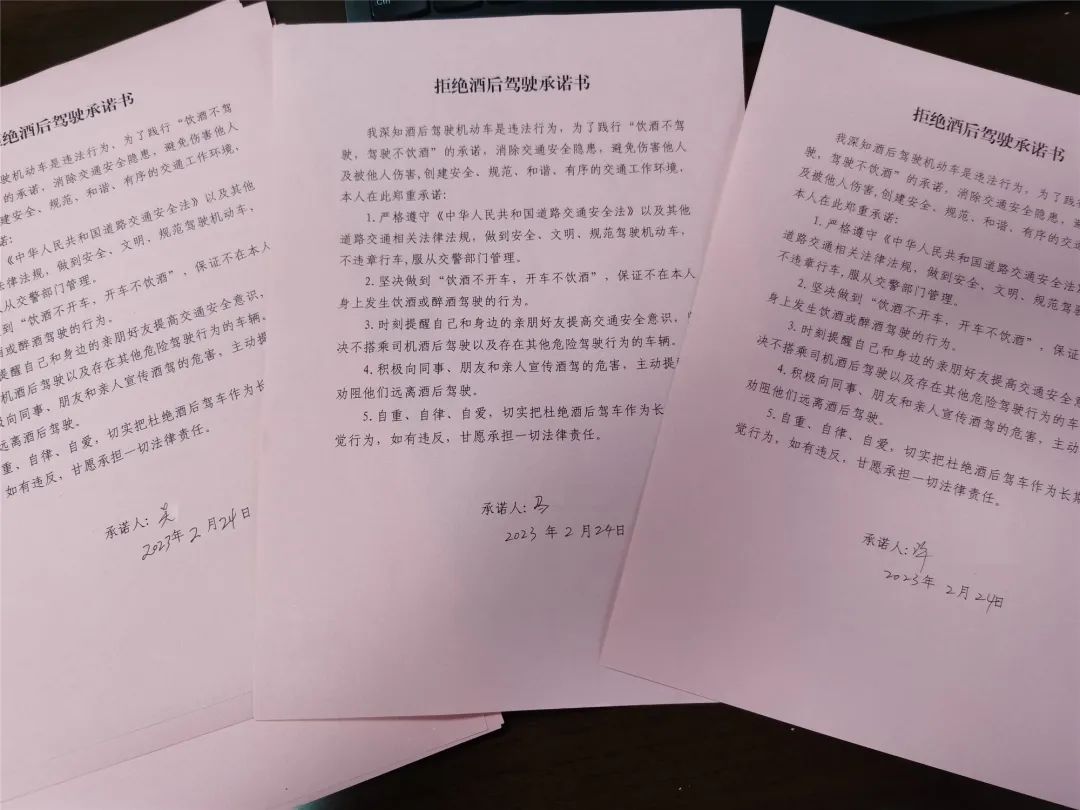 绝酒后驾驶承诺书
驶机动车是违法行为，为了践行“饮酒不驾
的承诺，消除交通安全隐患，避免伤害他人
建安全、规范、和谐、有序的交通工作环境，
诺：
《中华人民共和国道路交通安全法》以及其他
法律法规，做到安全、文明、规范驾驶机动车，
从交警部门管理。
到“饮酒不开车，开车不饮酒”，保证不在本人
酒或醉酒驾驶的行为。
提醒自己和身边的亲朋好友提高交通安全意识，
机酒后驾驶以及存在其他危险驾驶行为的车辆。
极向同事、朋友和亲人宣传酒驾的危害，主动提
远离酒后驾驶。
重、自律、自爱，切实把杜绝酒后驾车作为长
如有违反，甘愿承担一切法律责任。
承诺人：吴
2023年2月24日
拒绝酒后驾驶承诺书
我深知酒后驾驶机动车是违法行为，为了践行“饮酒不驾
驶，驾驶不饮酒”的承诺，消除交通安全隐患，避免伤害他人
及被他人伤害,创建安全、规范、和谐、有序的交通工作环境，
本人在此郑重承诺：
1.严格遵守《中华人民共和国道路交通安全法》以及其他
道路交通相关法律法规，做到安全、文明、规范驾驶机动车，
不违章行车,服从交警部门管理。
2.坚决做到“饮酒不开车，开车不饮酒”，保证不在本人
身上发生饮酒或醉酒驾驶的行为。
3.时刻提醒自己和身边的亲朋好友提高交通安全意识，
决不搭乘司机酒后驾驶以及存在其他危险驾驶行为的车辆。
4.积极向同事、朋友和亲人宣传酒驾的危害，主动提
劝阻他们远离酒后驾驶。
5.自重、自律、自爱，切实把杜绝酒后驾车作为长
觉行为，如有违反，甘愿承担一切法律责任。
承诺人：马
2023年2月24日
拒绝酒后驾驶承诺书
我深知酒后驾驶机动车是违法行为，为了践行
驶，驾驶不饮酒”的承诺，消除交通安全隐患，避免
及被他人伤害,创建安全、规范、和谐、有序的交通
本人在此郑重承诺：
1.严格遵守《中华人民共和国道路交通安全法
道路交通相关法律法规，做到安全、文明、规范驾驶
不违章行车,服从交警部门管理。
2.坚决做到“饮酒不开车，开车不饮酒”，保证
身上发生饮酒或醉酒驾驶的行为。
3.时刻提醒自己和身边的亲朋好友提高交通安全意
决不搭乘司机酒后驾驶以及存在其他危险驾驶行为的车
4.积极向同事、朋友和亲人宣传酒驾的危害，主动
劝阻他们远离酒后驾驶。
5.自重、自律、自爱，切实把杜绝酒后驾车作为长期
觉行为，如有违反，甘愿承担一切法律责任。
承诺人：
2023年2月24日